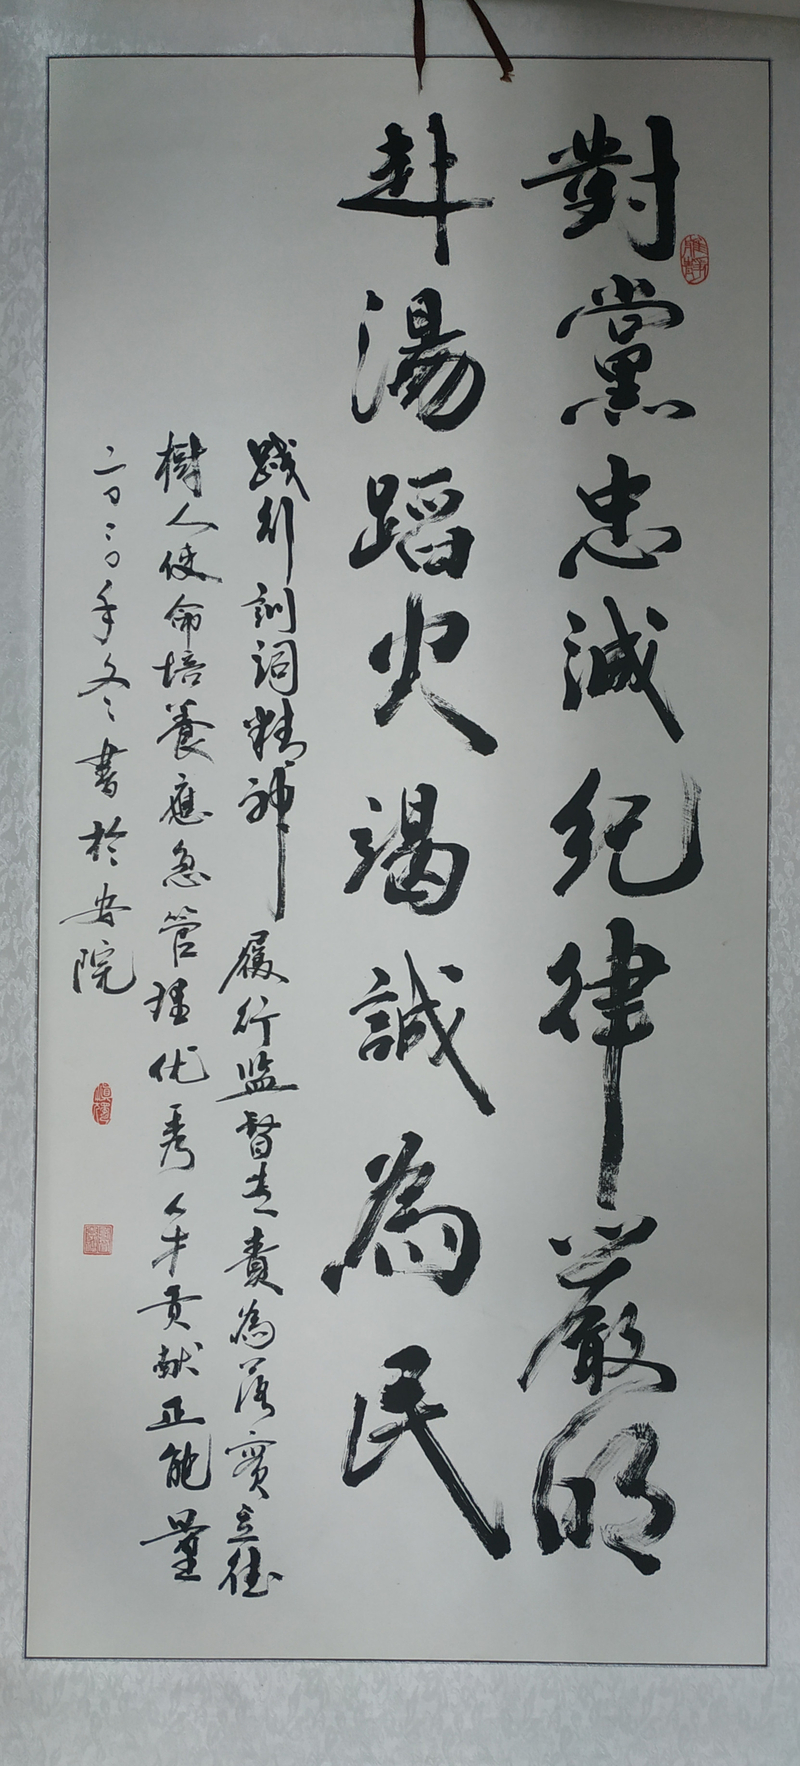 對黨忠誠紀律嚴明
赴湯蹈火竭誠為民
践行訓词精神履行监督专責為落實立德
樹人使命培養應急管理优秀人才贡献正能量
二〇二〇年冬書於安院